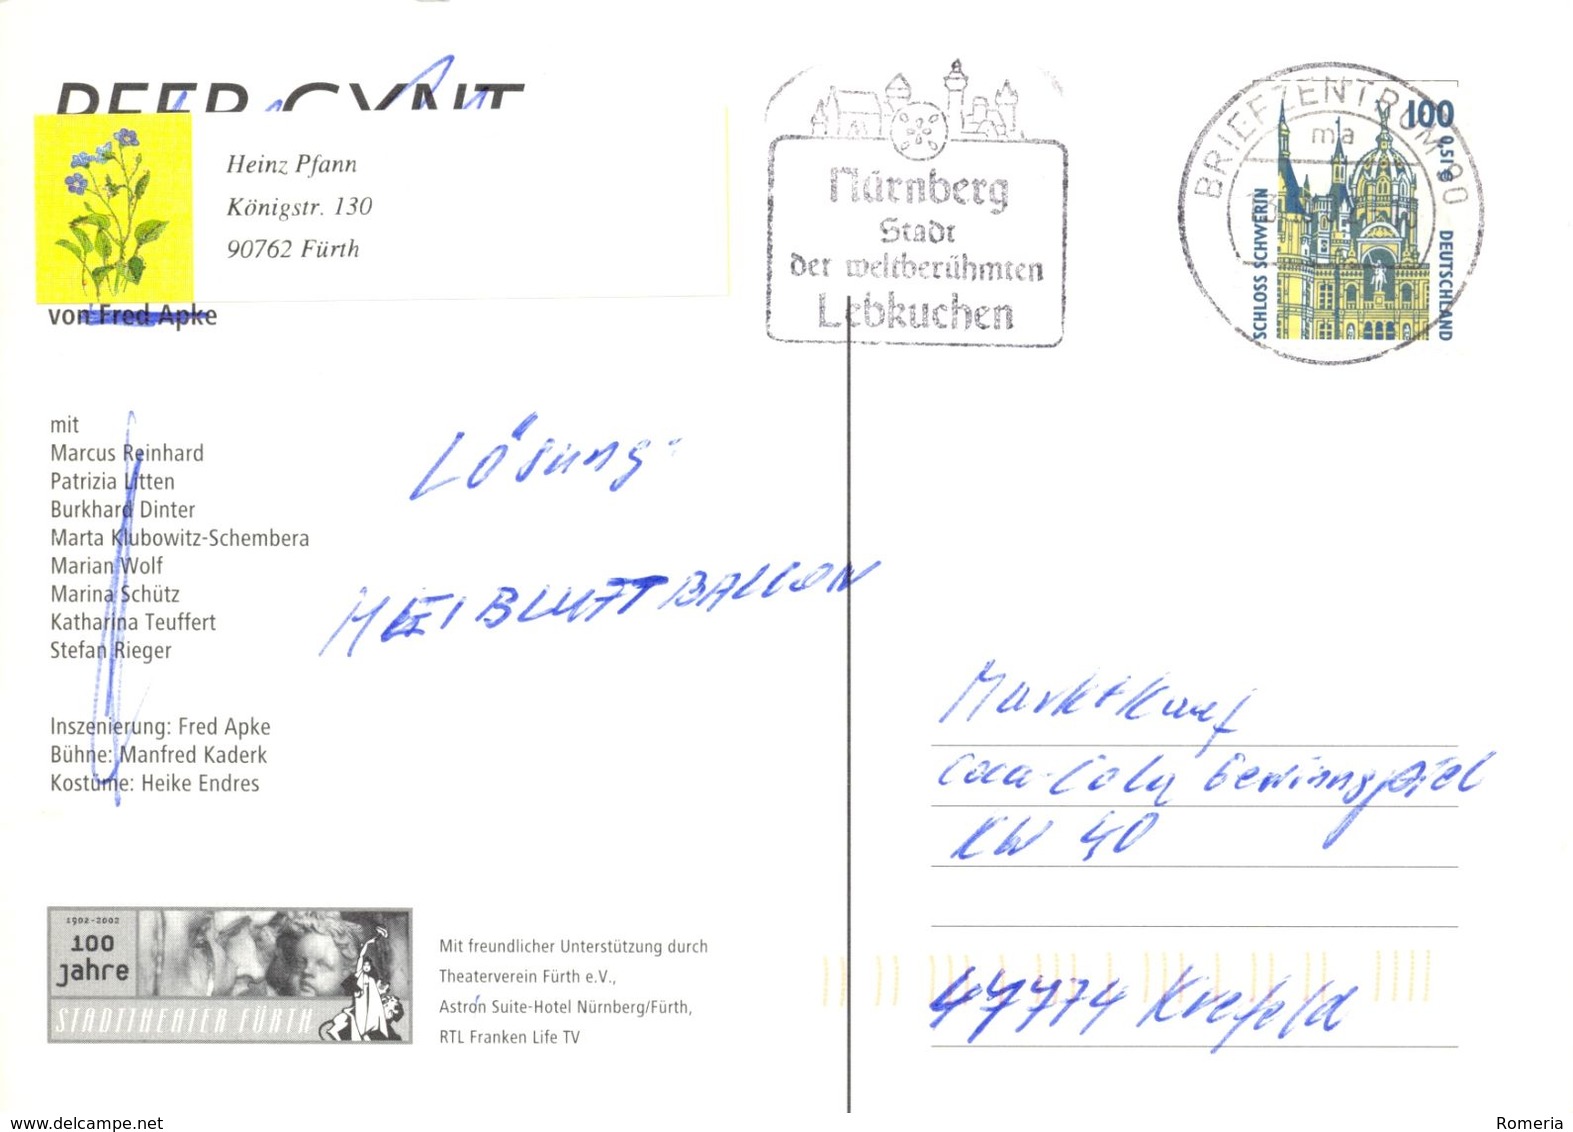 PEER GYNT
Heinz Pfann
Königstr. 130
90762 Fürth
von Fred Apke
mit
Marcus Reinhard
Patrizia Litten
Burkhard Dinter
Marta Klubowitz-Schembera
Marian Wolf
Marina Schütz
Katharina Teuffert
Stefan Rieger
Inszenierung: Fred Apke
Bühne: Manfred Kaderk
Kostüme: Heike Endres
Lösung:
HEIßLUFTBALLON
1902-2002
100
jahre
STADTTHEATER FÜRTH
Mit freundlicher Unterstützung durch
Theaterverein Fürth e.V.,
Astron Suite-Hotel Nürnberg/Fürth,
RTL Franken Life TV
Nürnberg
Stadt
der weltberühmten
Lebkuchen
BRIEFZENTRUM 90
ma
100
0,51 €
SCHLOSS SCHWERIN
DEUTSCHLAND
Marktkauf
Coca-Cola Gewinnspiel
KW 40
47774 Krefeld
www.delcampe.net
Romeria